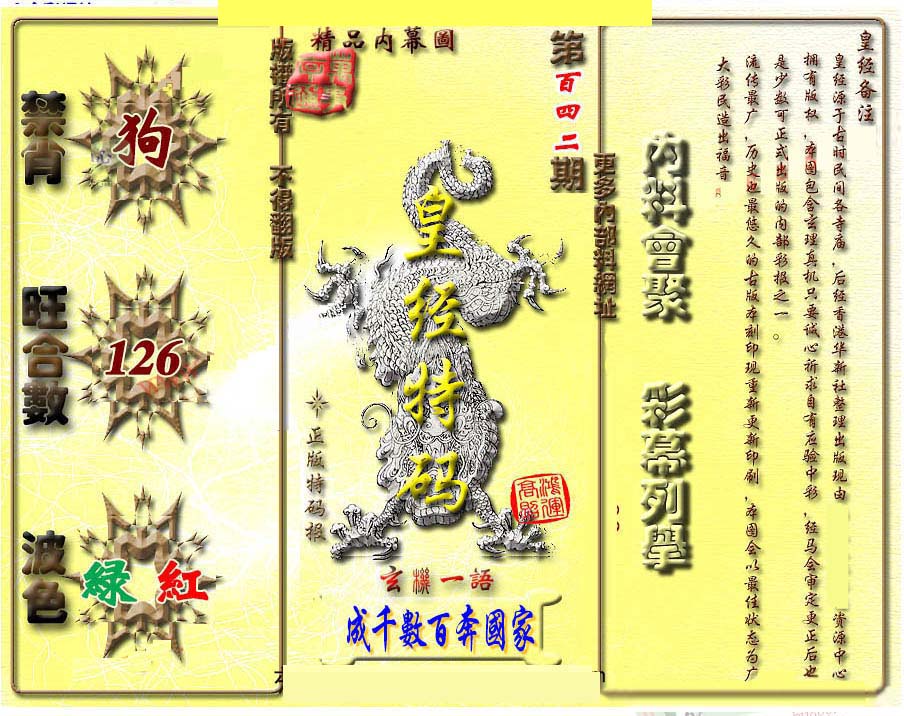 禁肖
狗
旺合數
126
波色
綠 紅
版權所有 不得翻版
精品內幕圖
第百四二期
皇经特码
正版特码报
鴻運高照
玄機一語
成千數百奔國家
更多內部料網址
內料會聚
彩幕列舉
皇经备注
皇经源于古时民间各寺庙,后经香港华新社整理出版现由 资源中心
拥有版权,本图包含玄理真机只要诚心祈求自有应验中彩,经马会审定更正后也
是少数可正式出版的内部彩报之一。
流传最广,历史也最悠久的古版本刻印现重新更新印刷,本图会以最佳状态为广
大彩民造出福音